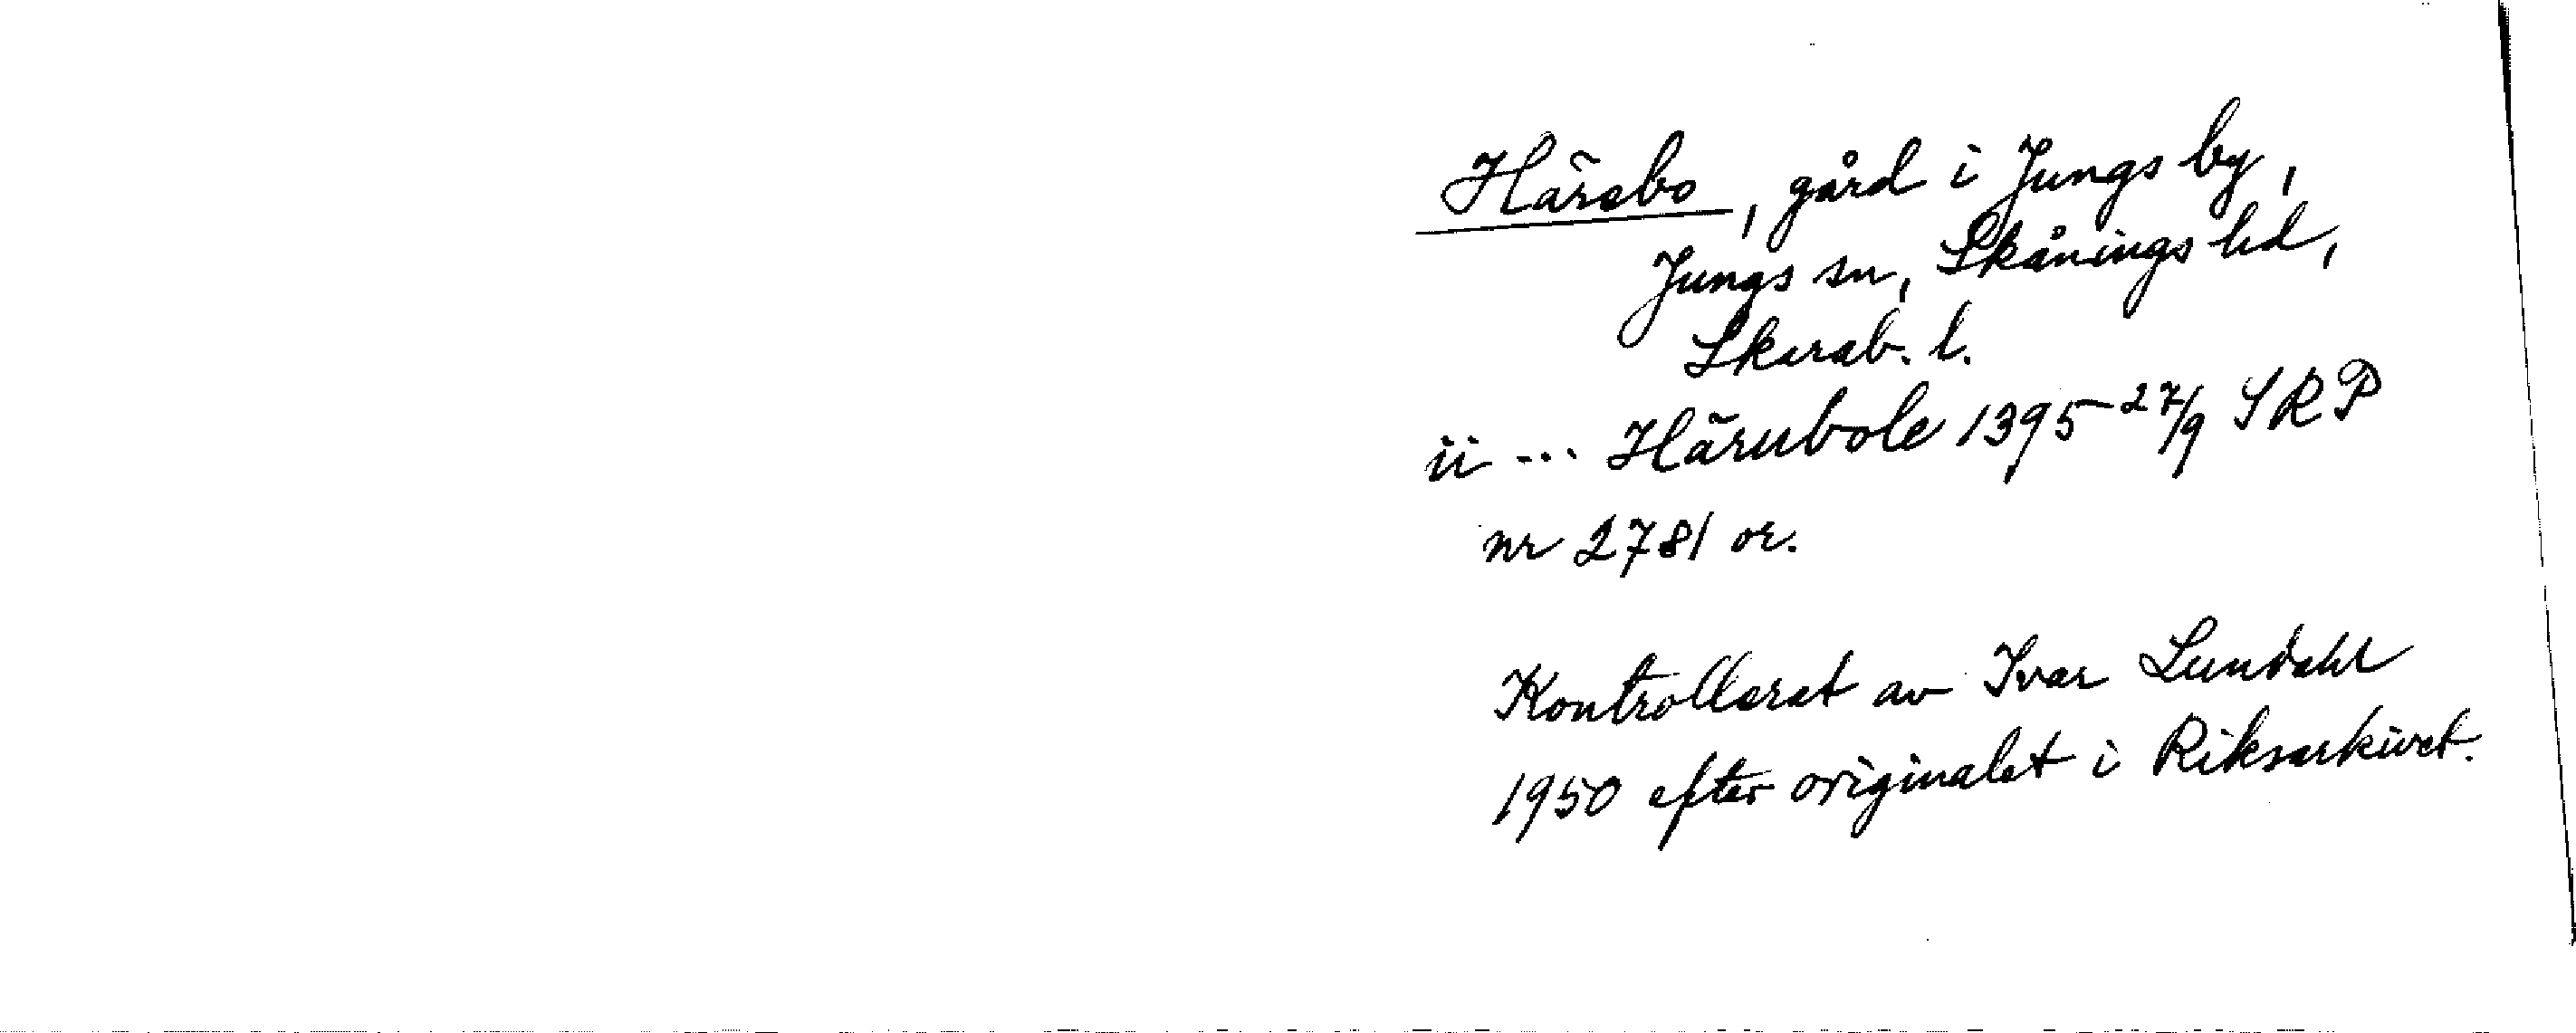 Härebo, gård i Jungs by,
Jungs sn, Skånings hd,
Skarab. l.
ii ... Härubole 1395 27/9 SRP
nr 2781 or.
Kontrollerat av Ivar Lundahl
1950 efter originalet i Riksarkivet.